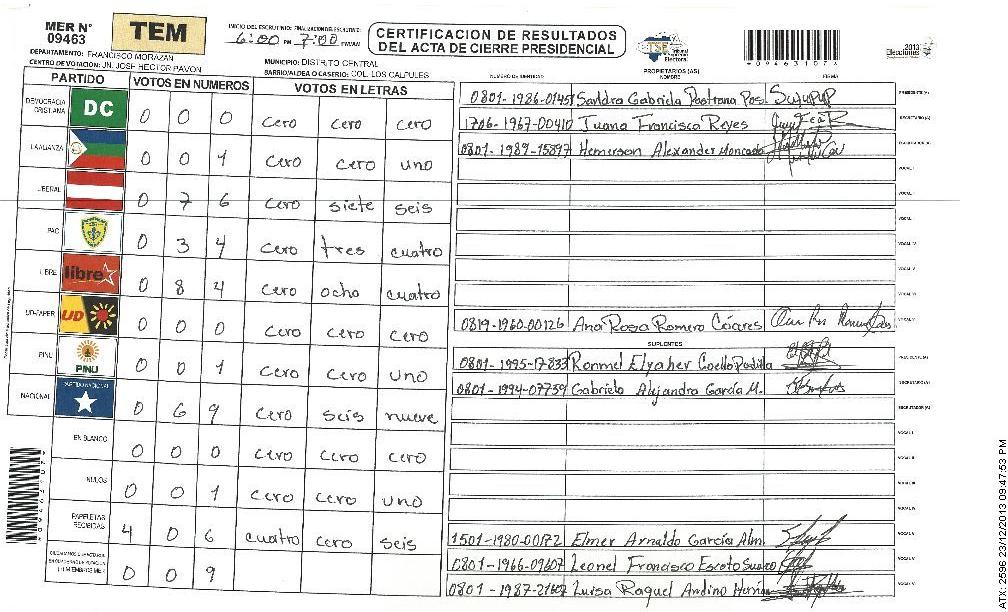 MER N° 09463
TEM
INICIO DEL ESCRUTINIO: FINALIZACION DEL ESCRUTINIO:
6:00 PM 7:00
CERTIFICACION DE RESULTADOS
DEL ACTA DE CIERRE PRESIDENCIAL
TSE Tribunal Supremo Electoral
0946310 7
2013 Elecciones
DEPARTAMENTO: FRANCISCO MORAZAN
CENTRO DE VOTACION: JN. JOSE HECTOR PAVON
MUNICIPIO: DISTRITO CENTRAL
BARRIO/ALDEA O CASERIO: COL. LOS CALPULES
PARTIDO VOTOS EN NUMEROS VOTOS EN LETRAS
DEMOCRACIA CRISTIANA DC 0 0 0 cero cero cero
LA ALIANZA 0 0 1 cero cero uno
LIBERAL 0 7 6 cero siete seis
PAC 0 3 4 cero tres cuatro
LIBRE libre 0 8 4 cero ocho cuatro
UD-FAPER UD 0 0 0 cero cero cero
PINU PINU 0 0 1 cero cero uno
NACIONAL PARTIDO NACIONAL 0 6 9 cero seis nueve
EN BLANCO 0 0 0 cero cero cero
NULOS 0 0 1 cero cero uno
PAPELETAS RECIBIDAS 4 0 6 cuatro cero seis
0 0 9
NUMERO DE IDENTIDAD PROPIETARIOS (AS) NOMBRE FIRMA
0801-1986-01451 Sandra Gabriela Pastrana Pos. PRESIDENTE (A)
1706-1967-00410 Juana Francisca Reyes SECRETARIO (A)
0801-1989-15897 Hemerson Alexander Moncada ESCRUTADOR (A)
VOCAL I
VOCAL II
VOCAL III
VOCAL IV
VOCAL V
VOCAL VI
0819-1960-00126 Ana Rosa Romero Cáares
SUPLENTES
0801-1995-17833 Ronmel Elyaher Coello Padilla PRESIDENTE (A)
0801-1994-07739 Gabriela Alejandra García M. SECRETARIO (A)
ESCRUTADOR (A)
VOCAL I
VOCAL II
VOCAL III
1501-1980-00172 Elmer Arnaldo García Alm.
0801-1966-09607 Leonel Francisco Escoto Suazo
0801-1987-21607 Luisa Raquel Andino
ATX: 2596 23/12/2013 09:47:53 PM